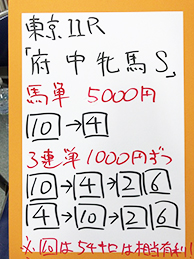 東京11R
「府中牝馬S」
馬単 5000円
10→4
3連単1000円ずつ
10→4→2 6
4→10→2 6
※10は54キロは相当有利!